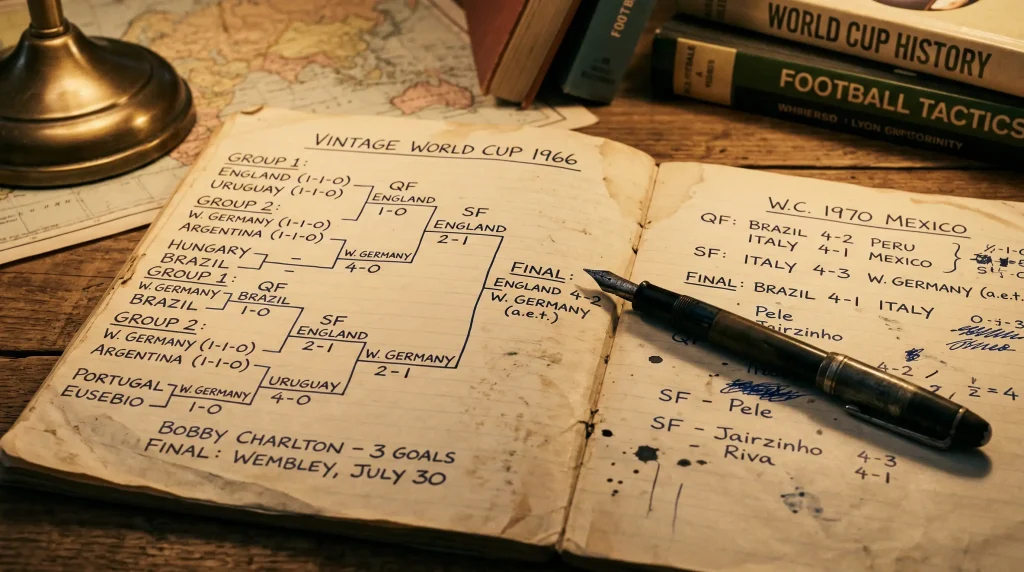 WORLD CUP HISTORY
FOOTBALL TACTICS
VINTAGE WORLD CUP 1966
GROUP 1:
ENGLAND (1-1-0)
URUGUAY (1-1-0)
QF
ENGLAND
1-0
GROUP 2:
W. GERMANY (1-1-0)
ARGENTINA (1-1-0)
HUNGARY
BRAZIL
–
W. GERMANY
4-0
SF
ENGLAND
2-1
GROUP 1:
W. GERMANY
BRAZIL
QF
BRAZIL
1-0
GROUP 2:
W. GERMANY (1-1-0)
ARGENTINA (1-1-0)
SF
ENGLAND
2-1
PORTUGAL
EUSEBIO
W. GERMANY
1-0
URUGUAY
4-0
W. GERMANY
2-1
FINAL:
ENGLAND 4-2
W. GERMANY
(a.e.t.)
BOBBY CHARLTON – 3 GOALS
FINAL: WEMBLEY, JULY 30
W.C. 1970 MEXICO
QF: BRAZIL 4-2 PERU
ITALY 4-1 MEXICO
SF: ITALY 4-3 W. GERMANY (a.e.t.)
FINAL: BRAZIL 4-1 ITALY
Pele
Jairzinho
4-2
SF – Pele
SF – Jairzinho 4-3
Riva 4-1